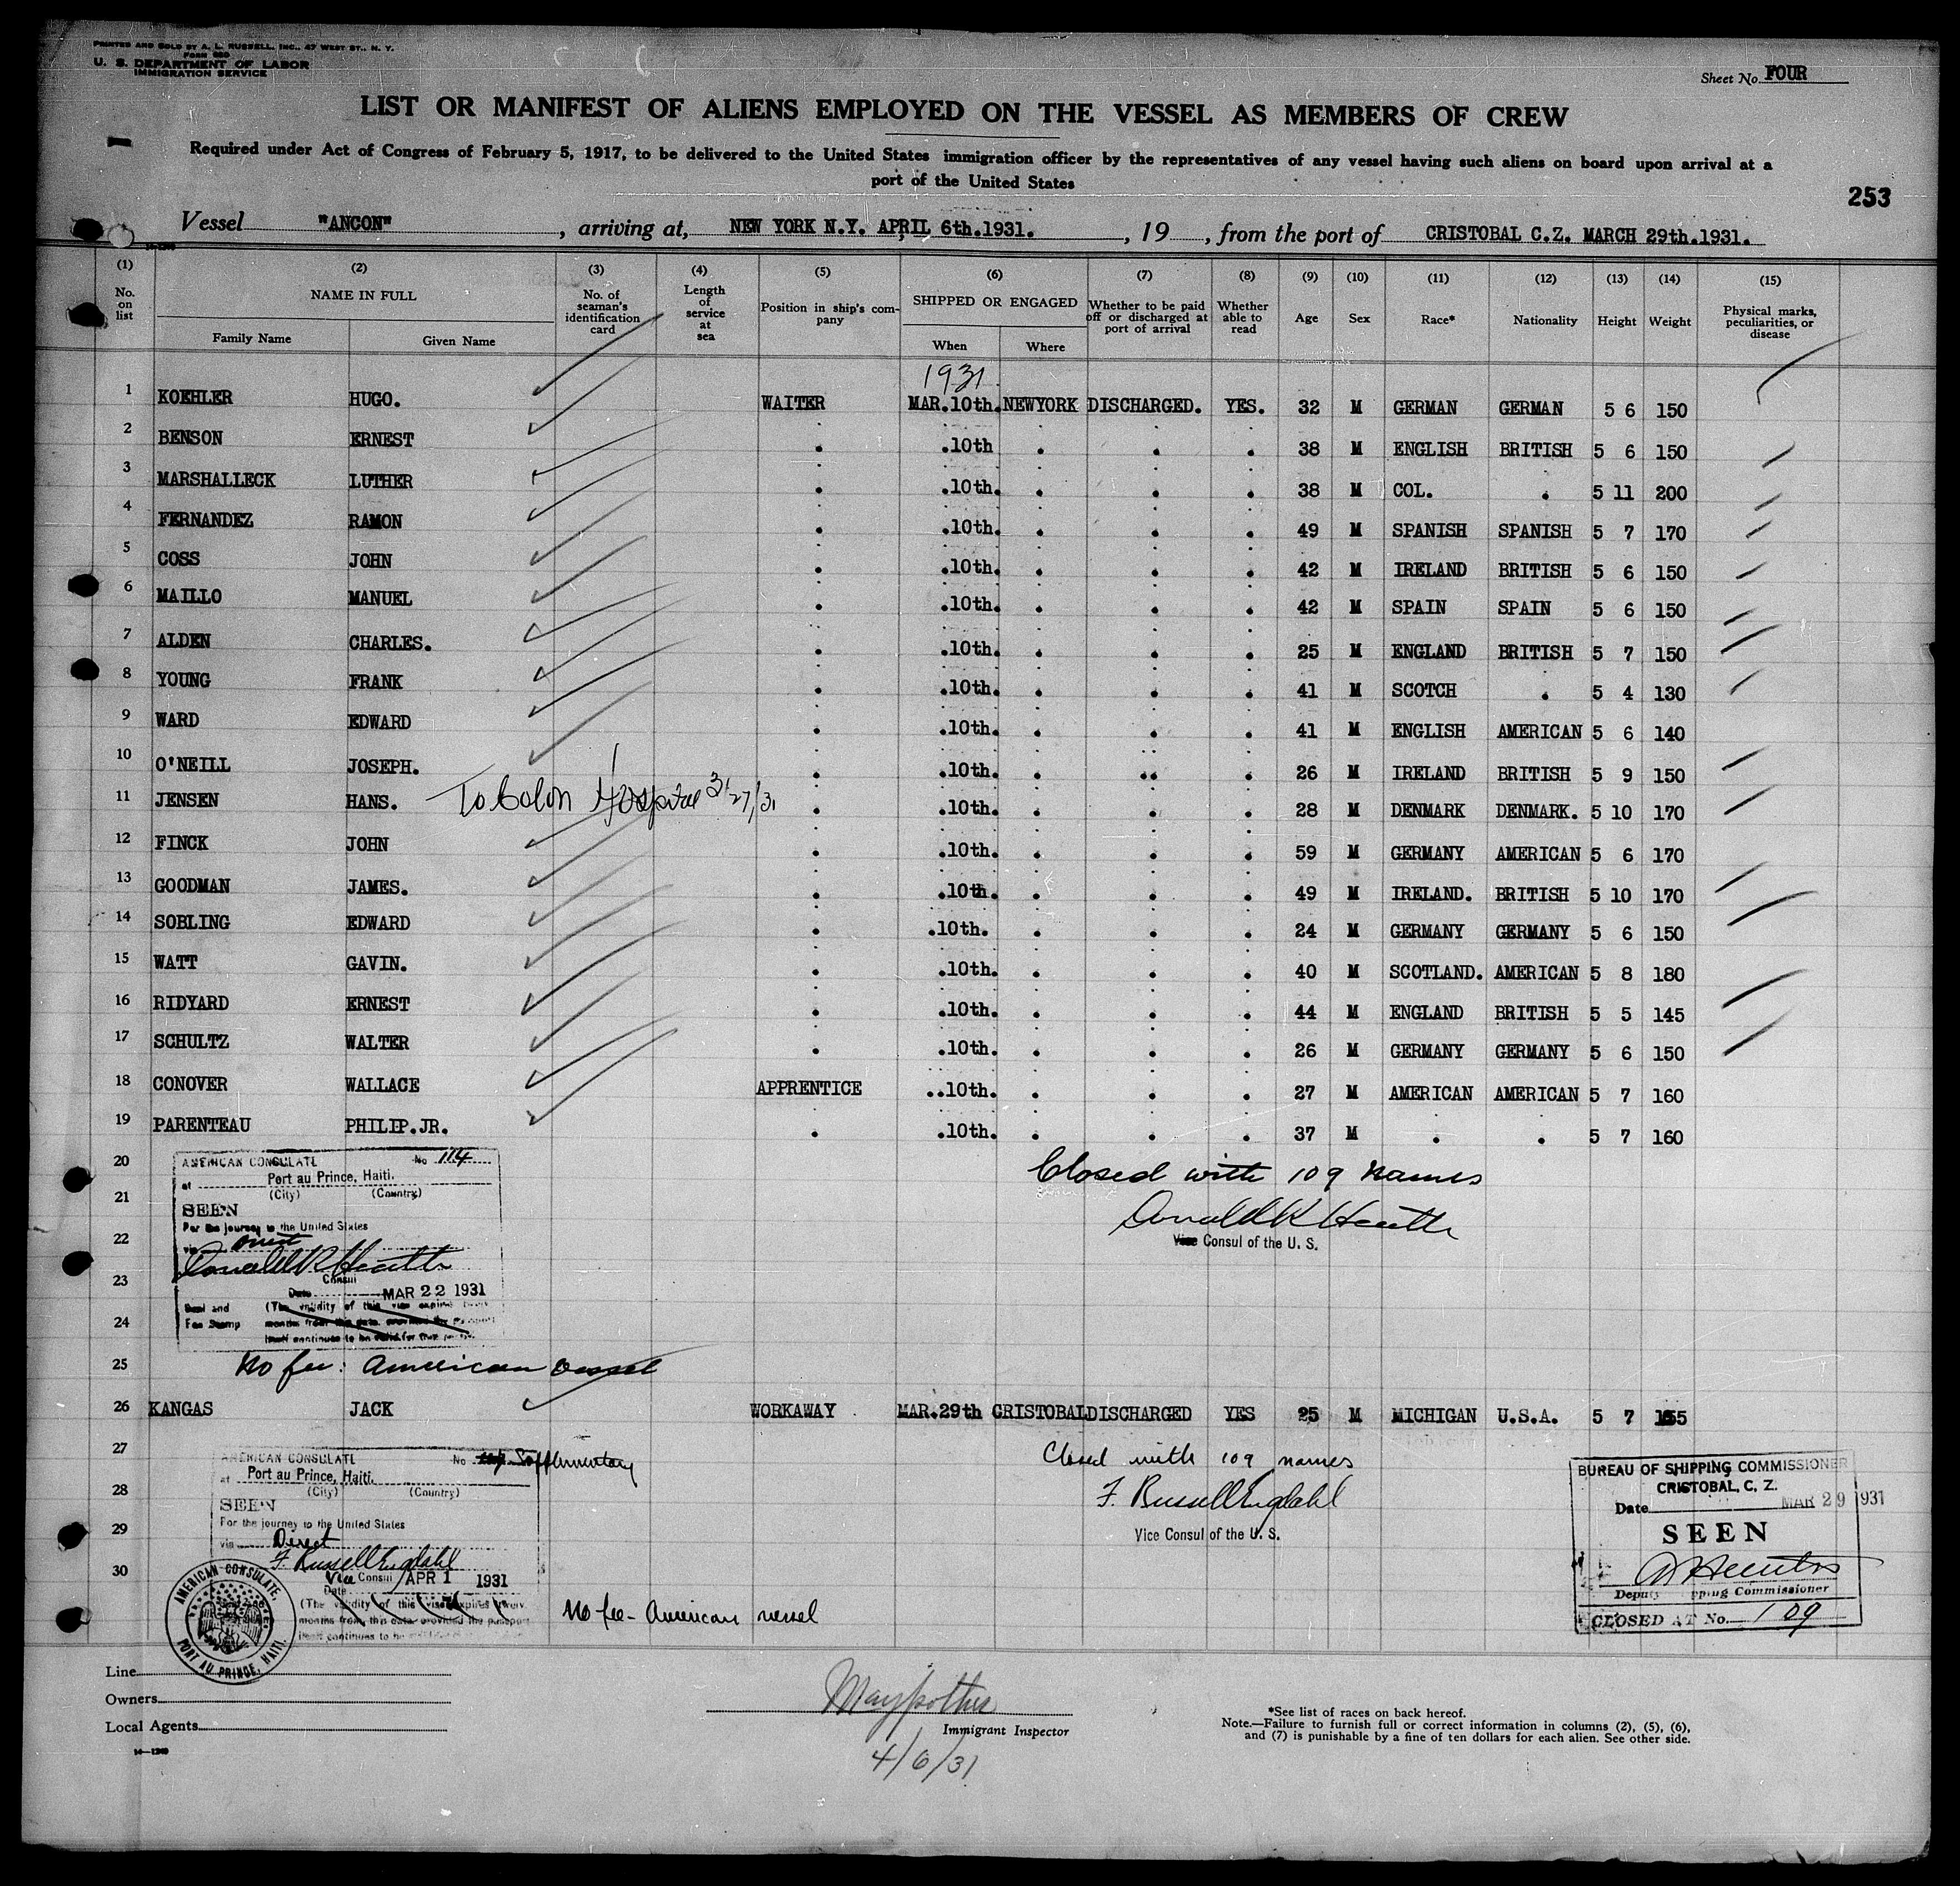 PRINTED AND SOLD BY A. L. RUSSELL, INC., 47 WEST ST., N. Y.
Form 680
U. S. DEPARTMENT OF LABOR
IMMIGRATION SERVICE
Sheet No. FOUR
LIST OR MANIFEST OF ALIENS EMPLOYED ON THE VESSEL AS MEMBERS OF CREW
Required under Act of Congress of February 5, 1917, to be delivered to the United States immigration officer by the representatives of any vessel having such aliens on board upon arrival at a
port of the United States
253
Vessel "ANCON", arriving at, NEW YORK N.Y. APRIL 6th.1931., 19, from the port of CRISTOBAL C.Z. MARCH 29th.1931.
(1) (2) (3) (4) (5) (6) (7) (8) (9) (10) (11) (12) (13) (14) (15)
No. on list NAME IN FULL Family Name Given Name No. of seaman's identification card Length of service at sea Position in ship's company SHIPPED OR ENGAGED When Where Whether to be paid off or discharged at port of arrival Whether able to read Age Sex Race* Nationality Height Weight Physical marks, peculiarities, or disease
1931
1 KOEHLER HUGO. WAITER MAR.10th. NEWYORK DISCHARGED. YES. 32 M GERMAN GERMAN 5 6 150
2 BENSON ERNEST . .10th . . . 38 M ENGLISH BRITISH 5 6 150
3 MARSHALLECK LUTHER . .10th. . . . 38 M COL. . 5 11 200
4 FERNANDEZ RAMON . .10th. . . . 49 M SPANISH SPANISH 5 7 170
5 COSS JOHN . .10th. . . . 42 M IRELAND BRITISH 5 6 150
6 MAILLO MANUEL . .10th. . . . 42 M SPAIN SPAIN 5 6 150
7 ALDEN CHARLES. . .10th. . . . 25 M ENGLAND BRITISH 5 7 150
8 YOUNG FRANK . .10th. . . . 41 M SCOTCH . 5 4 130
9 WARD EDWARD . .10th. . . . 41 M ENGLISH AMERICAN 5 6 140
10 O'NEILL JOSEPH. . .10th. . .. . 26 M IRELAND BRITISH 5 9 150
11 JENSEN HANS. To Colon Hospital 3/27/31 . .10th. . . . 28 M DENMARK DENMARK. 5 10 170
12 FINCK JOHN . .10th. . . . 59 M GERMANY AMERICAN 5 6 170
13 GOODMAN JAMES. . .10th. . . . 49 M IRELAND. BRITISH 5 10 170
14 SOBLING EDWARD . .10th. . . . 24 M GERMANY GERMANY 5 6 150
15 WATT GAVIN. . .10th. . . . 40 M SCOTLAND. AMERICAN 5 8 180
16 RIDYARD ERNEST . .10th. . . . 44 M ENGLAND BRITISH 5 5 145
17 SCHULTZ WALTER . .10th. . . . 26 M GERMANY GERMANY 5 6 150
18 CONOVER WALLACE APPRENTICE ..10th. . . . 27 M AMERICAN AMERICAN 5 7 160
19 PARENTEAU PHILIP.JR. . .10th. . . . 37 M . . 5 7 160
20
21
22
23
24
25
AMERICAN CONSULATE No 114
at Port au Prince, Haiti.
(City) (Country)
SEEN
For the journey to the United States
via Direct
Donald R Heath
Consul
Date MAR 22 1931
Seal and Fee Stamp (The validity of this visa expires twelve
months from this date provided the passport
itself continues to be valid for that period)
Closed with 109 names
Donald R Heath
Vice Consul of the U. S.
No fee: American vessel
26 KANGAS JACK WORKAWAY MAR.29th CRISTOBAL DISCHARGED YES 25 M MICHIGAN U.S.A. 5 7 155
27
28
29
30
AMERICAN CONSULATE No Supplementary
at Port au Prince, Haiti.
(City) (Country)
SEEN
For the journey to the United States
via Direct
F. Russell Engdahl
Vice Consul
Date APR 1 1931
(The validity of this visa expires twelve
months from this date provided the passport
itself continues to be
AMERICAN CONSULATE, PORT AU PRINCE, HAITI.
No fee - American vessel
Closed with 109 names
F. Russell Engdahl
Vice Consul of the U. S.
BUREAU OF SHIPPING COMMISSIONER
CRISTOBAL, C. Z.
Date MAR 29 1931
SEEN
Deputy Shipping Commissioner
CLOSED AT No. 109
Line
Owners
Local Agents
14—1240
Immigrant Inspector
4/6/31
*See list of races on back hereof.
Note.—Failure to furnish full or correct information in columns (2), (5), (6),
and (7) is punishable by a fine of ten dollars for each alien. See other side.